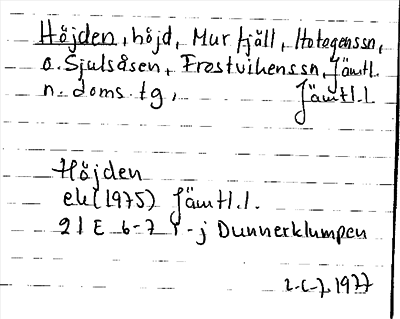 Höjden, höjd, Murfjäll, Hotagenssn,
o. Sjulsåsen, Frostvikenssn, Jämtl.
n. doms. tg, Jämtl.l.
Höjden
ek (1975) Jämtl.l.
21 E 6-7 i-j Dunnerklumpen
1977